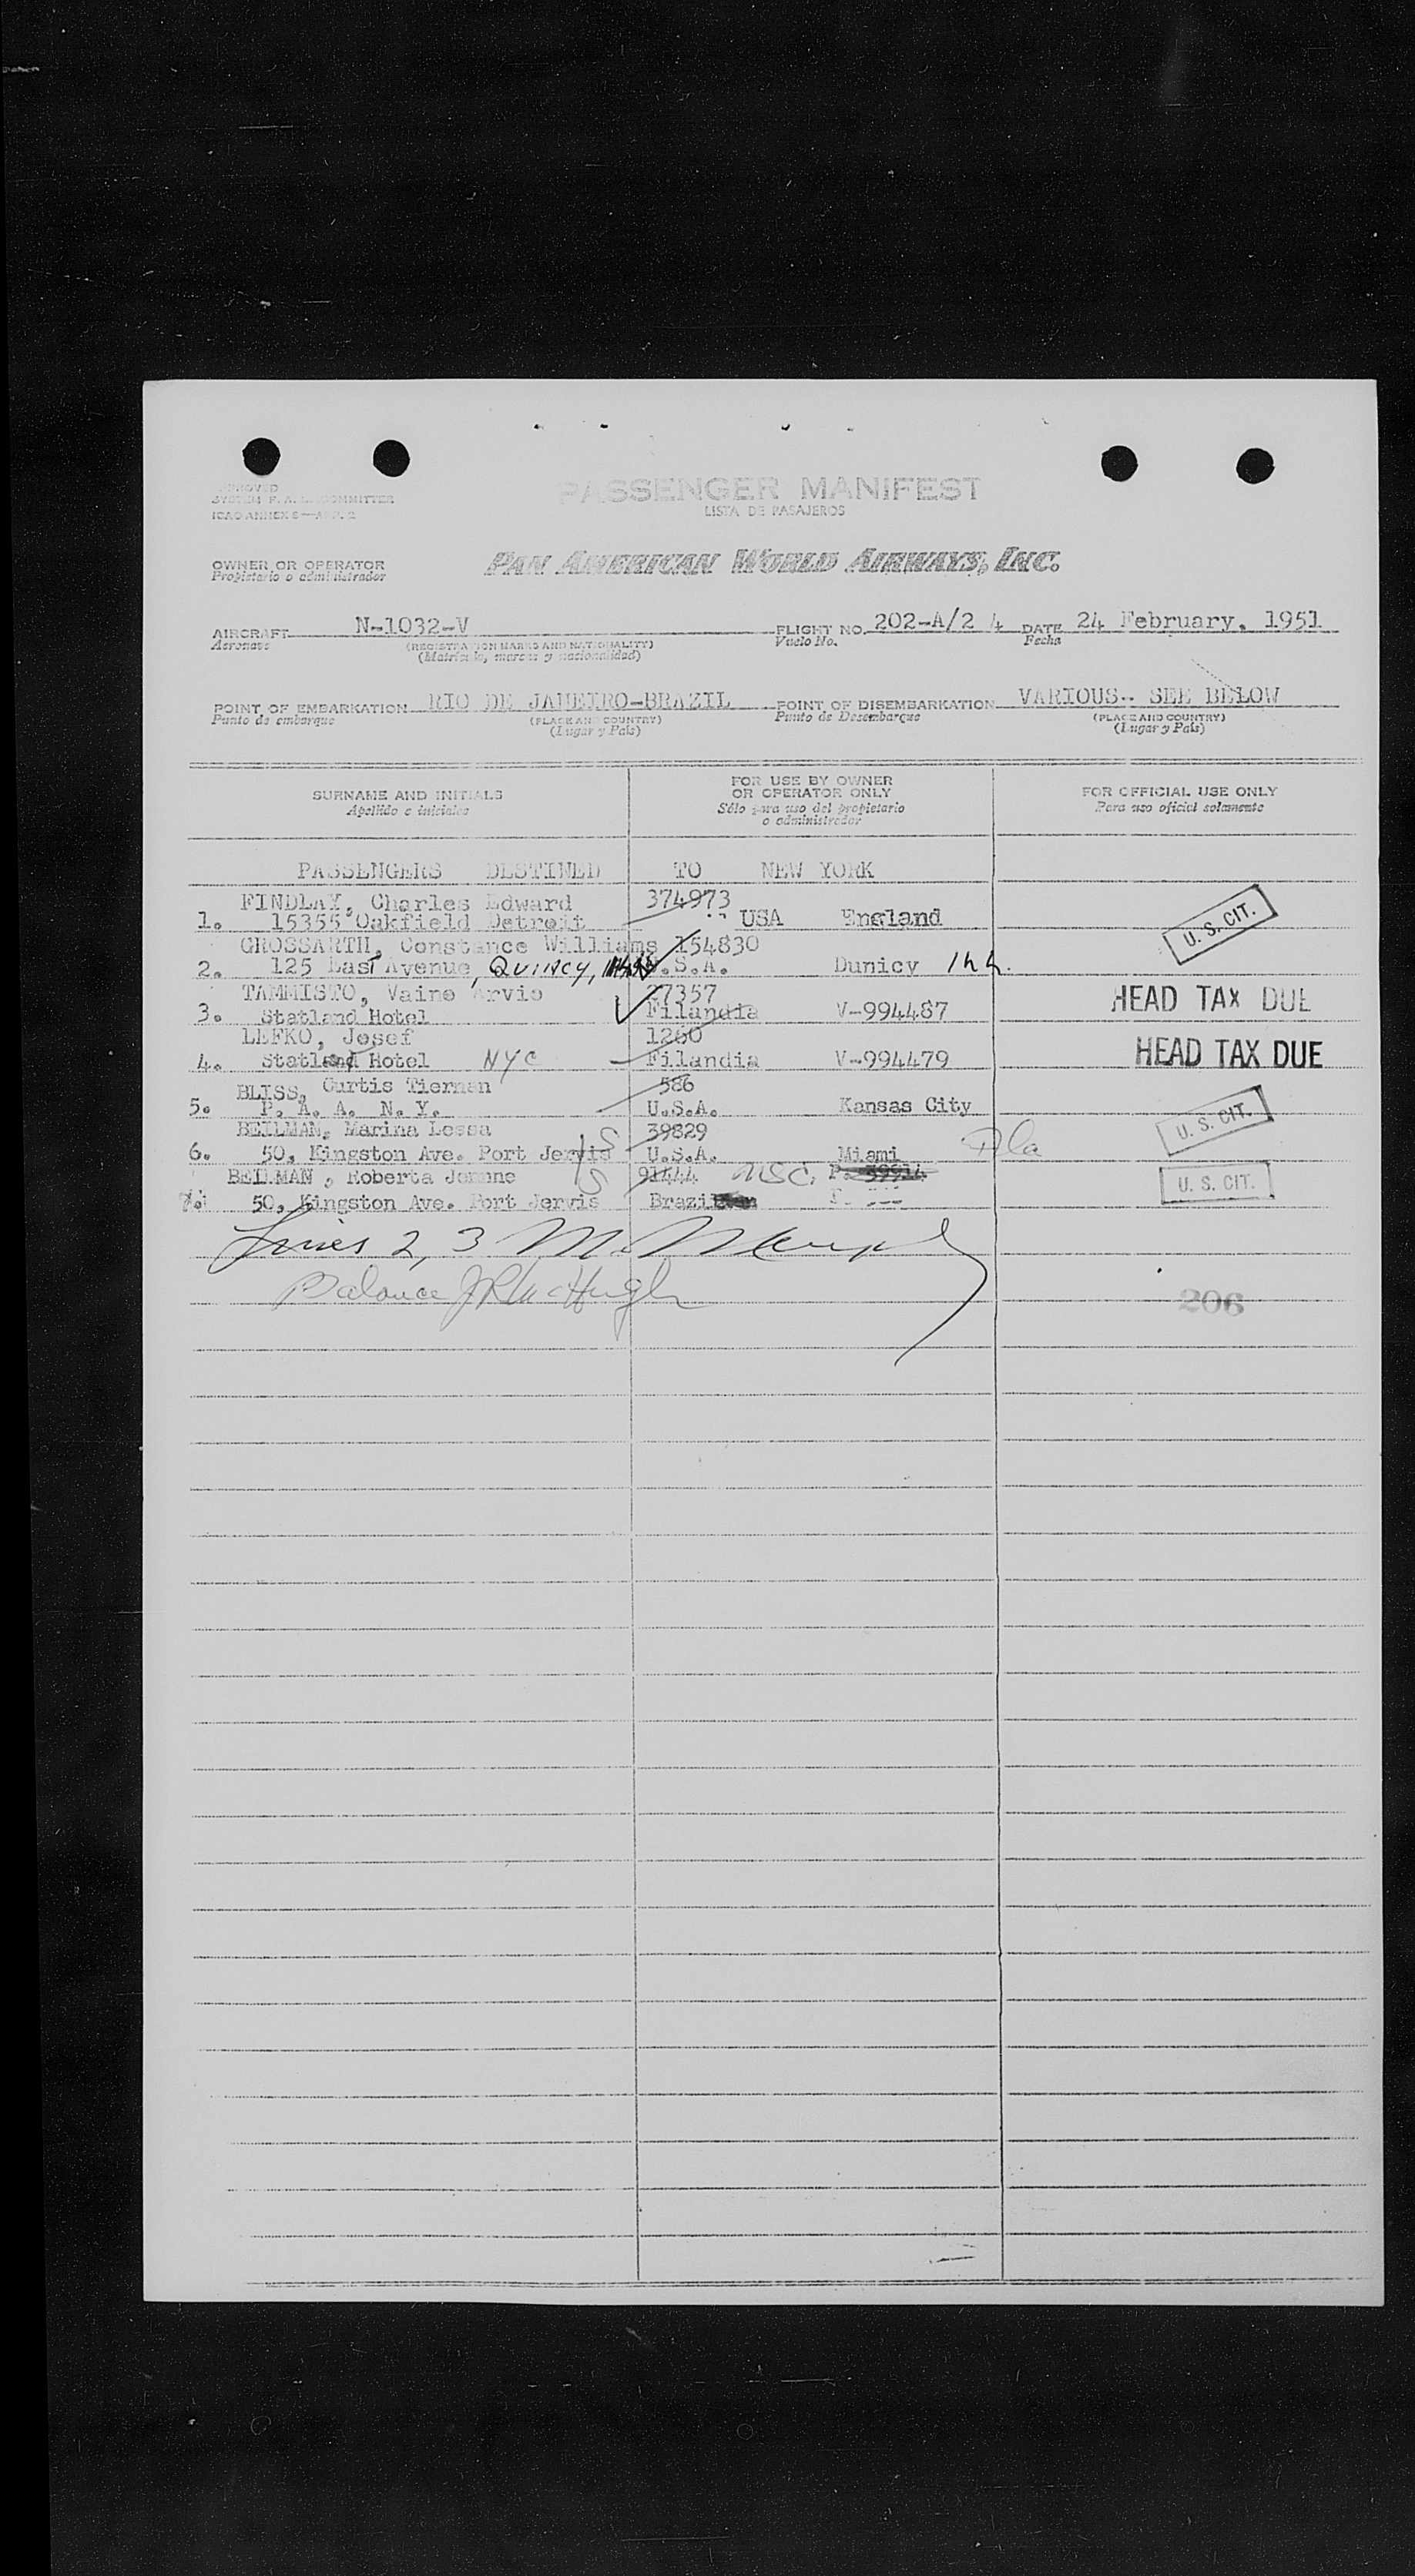 PASSENGER MANIFEST
LISTA DE PASAJEROS
ICAO ANNEX
OWNER OR OPERATOR
Propietario o administrador
PAN AMERICAN WORLD AIRWAYS, INC.
AIRCRAFT N-1032-V FLIGHT NO. 202-A/2 4 DATE 24 February, 1951
Aeronave (REGISTRATION MARKS AND NATIONALITY) Vuelo No. Fecha
(Matrícula, marcas y nacionalidad)
POINT OF EMBARKATION RIO DE JANEIRO-BRAZIL POINT OF DISEMBARKATION VARIOUS-- SEE BELOW
Punto de embarque (PLACE AND COUNTRY) Punto de Desembarque (PLACE AND COUNTRY)
(Lugar y País) (Lugar y País)
SURNAME AND INITIALS
Apellido e iniciales
FOR USE BY OWNER
OR OPERATOR ONLY
Sólo para uso del propietario
o administrador
FOR OFFICIAL USE ONLY
Para uso oficial solamente
PASSENGERS DESTINED TO NEW YORK
FINDLAY, Charles Edward 374973
1. 15355 Oakfield Detroit USA England U. S. CIT.
GROSSARTH, Constance Williams 154830
2. 125 East Avenue, QUINCY, U.S.A. Dunicy
TAMMISTO, Vaino Arvio 27357
3. Statland Hotel Filandia V-994487 HEAD TAX DUE
LEFKO, Josef 1260
4. Statland Hotel NYC Filandia V-994479 HEAD TAX DUE
BLISS, Curtis Tiernan 586
5. P. A. A. N. Y. U.S.A. Kansas City U. S. CIT.
BEILMAN, Marina Lessa 39829
6. 50, Kingston Ave. Port Jervis S U.S.A. Miami Fla
BEILMAN, Roberta 91444 U. S. CIT.
7. 50, Kingston Ave. Port Jervis S Brazil
Lines 2, 3 M.
Balance J R McHugh
206